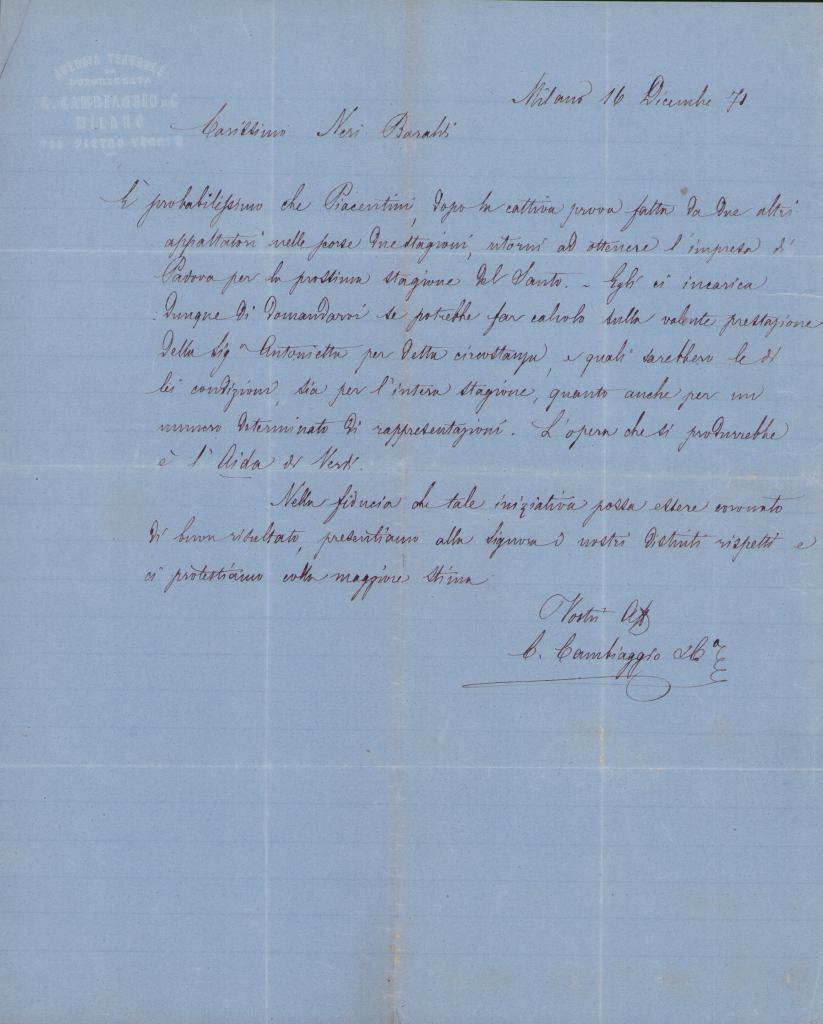 AGENZIA TEATRALE
AUTORIZZATA
C. CAMBIAGGIO e C
MILANO
VIA PIETRO VERRI
Milano 16 Dicembre 71
Carissimo Neri Baraldi
È probabilissimo che Piacentini, dopo la cattiva prova fatta da due altri
appaltatori nelle scorse due stagioni, ritorni ad ottenere l'impresa di
Padova per la prossima stagione del Santo. - Egli ci incarica
dunque di domandarvi se potrebbe far calcolo sulla valente prestazione
della Sigª Antonietta per detta circostanza, e quali sarebbero le di
lei condizioni, sia per l'intera stagione, quanto anche per un
numero determinato di rappresentazioni. L'opera che si produrrebbe
è l'Aida di Verdi.
Nella fiducia che tale iniziativa possa essere coronata
di buon risultato, presentiamo alla Signora i nostri distinti rispetti e
ci protestiamo colla maggiore stima
Vostri Aff
C. Cambiaggio & Cª